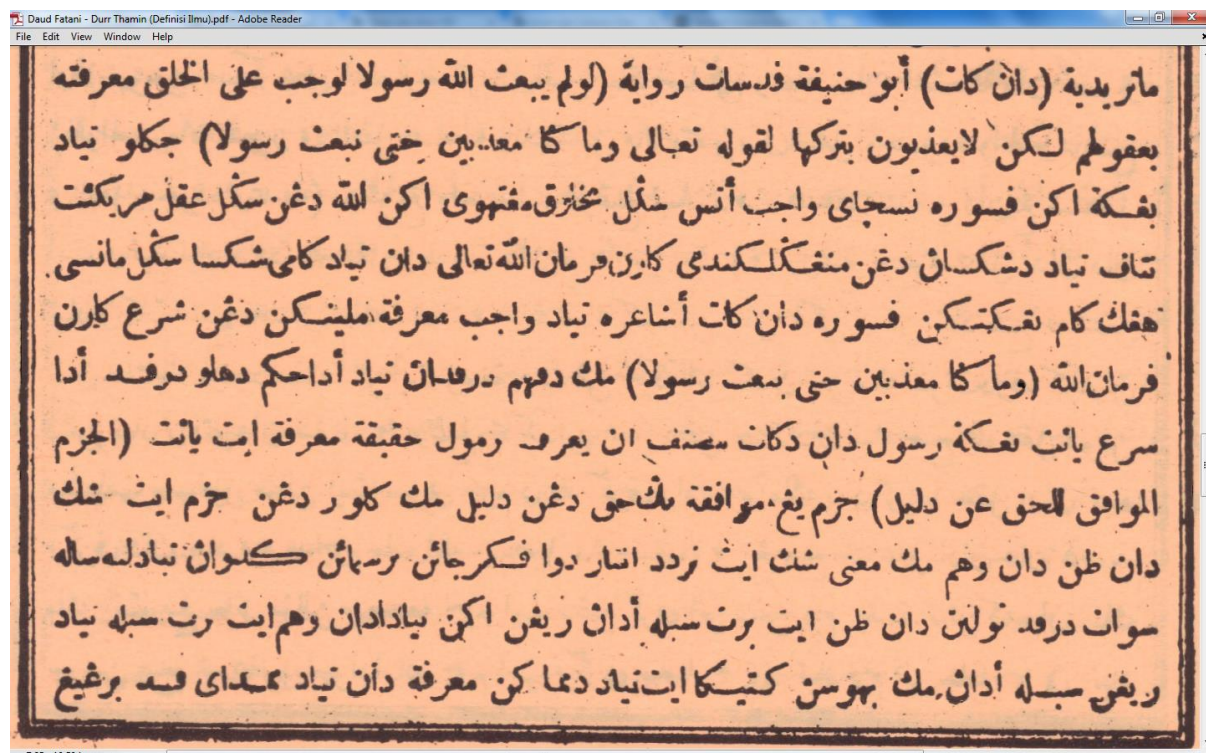 Daud Fatani - Durr Thamin (Definisi Ilmu).pdf - Adobe Reader
File Edit View Window Help
ماتريدية (دان كات) أبو حنيفة فدسات رواية (لولم يبعث الله رسولا لوجب على الخلق معرفته
بعقولهم لكن لايعذبون بتركها لقوله تعالى وما كنا معذبين حتى نبعث رسولا) جكلو تياد
بڠكة اكن فسوره نسچاي واجب أتس سكل مخلوق مڠتهوي اكن الله دڠن سكل عقل مريكئت
تتاف تياد دشكسان دڠن منڠكلكندي كارن فرمان الله تعالى دان تياد كامي شكسا سكل مانسي
هڠك كام بڠكتكن فسوره دان كات أشاعره تياد واجب معرفة ملينكن دڠن شرع كارن
فرمان الله (وما كنا معذبين حتى نبعث رسولا) مك دفهم درفدان تياد أداحكم دهلو درفد أدا
سرع يائت بڠكة رسول دان دكات مصنف ان يعرف رمول حقيقة معرفة ايت يائت (الجزم
الموافق للحق عن دليل) جزم يڠ موافقة بڬ حق دڠن دليل مك كلور دڠن جزم ايت شك
دان ظن دان وهم مك معنى شك ايت تردد انتار دوا فكرجائن برسمائن كدوان تيادله ساله
سوات درفد توليت دان ظن ايت برت سبله أدان ريڠن اكن تيادادان وهم ايت برت سبله تياد
ريڠن سبله أدان مك بهوسن كتيڬا ايت تياد دنما كن معرفة دان تياد ممداي فد برڠيڠ